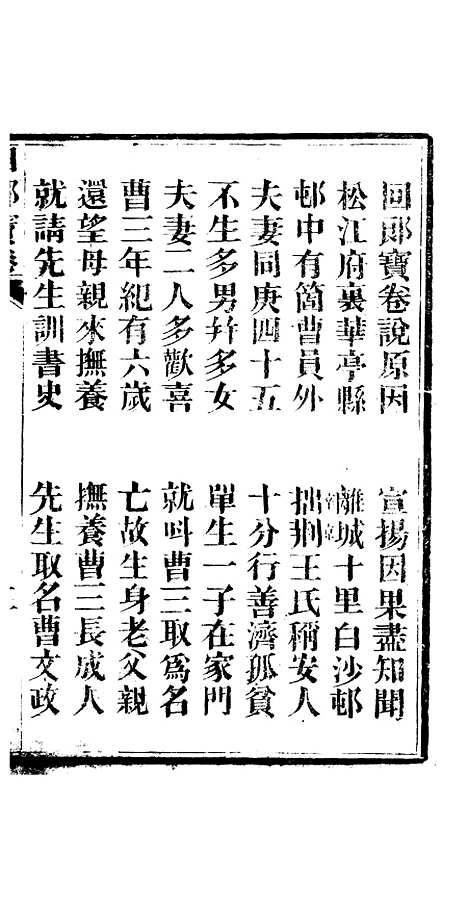 回郎寶卷說原因 宣揚因果盡知聞
松江府裏華亭縣 離城十里白沙邨
邨中有箇曹員外 拙荆王氏稱安人
夫妻同庚四十五 十分行善濟孤貧
不生多男并多女 單生一子在家門
夫妻二人多歡喜 就呌曹三取爲名
曹三年紀有六歲 亡故生身老父親
還望母親來撫養 撫養曹三長成人
就請先生訓書史 先生取名曹文政